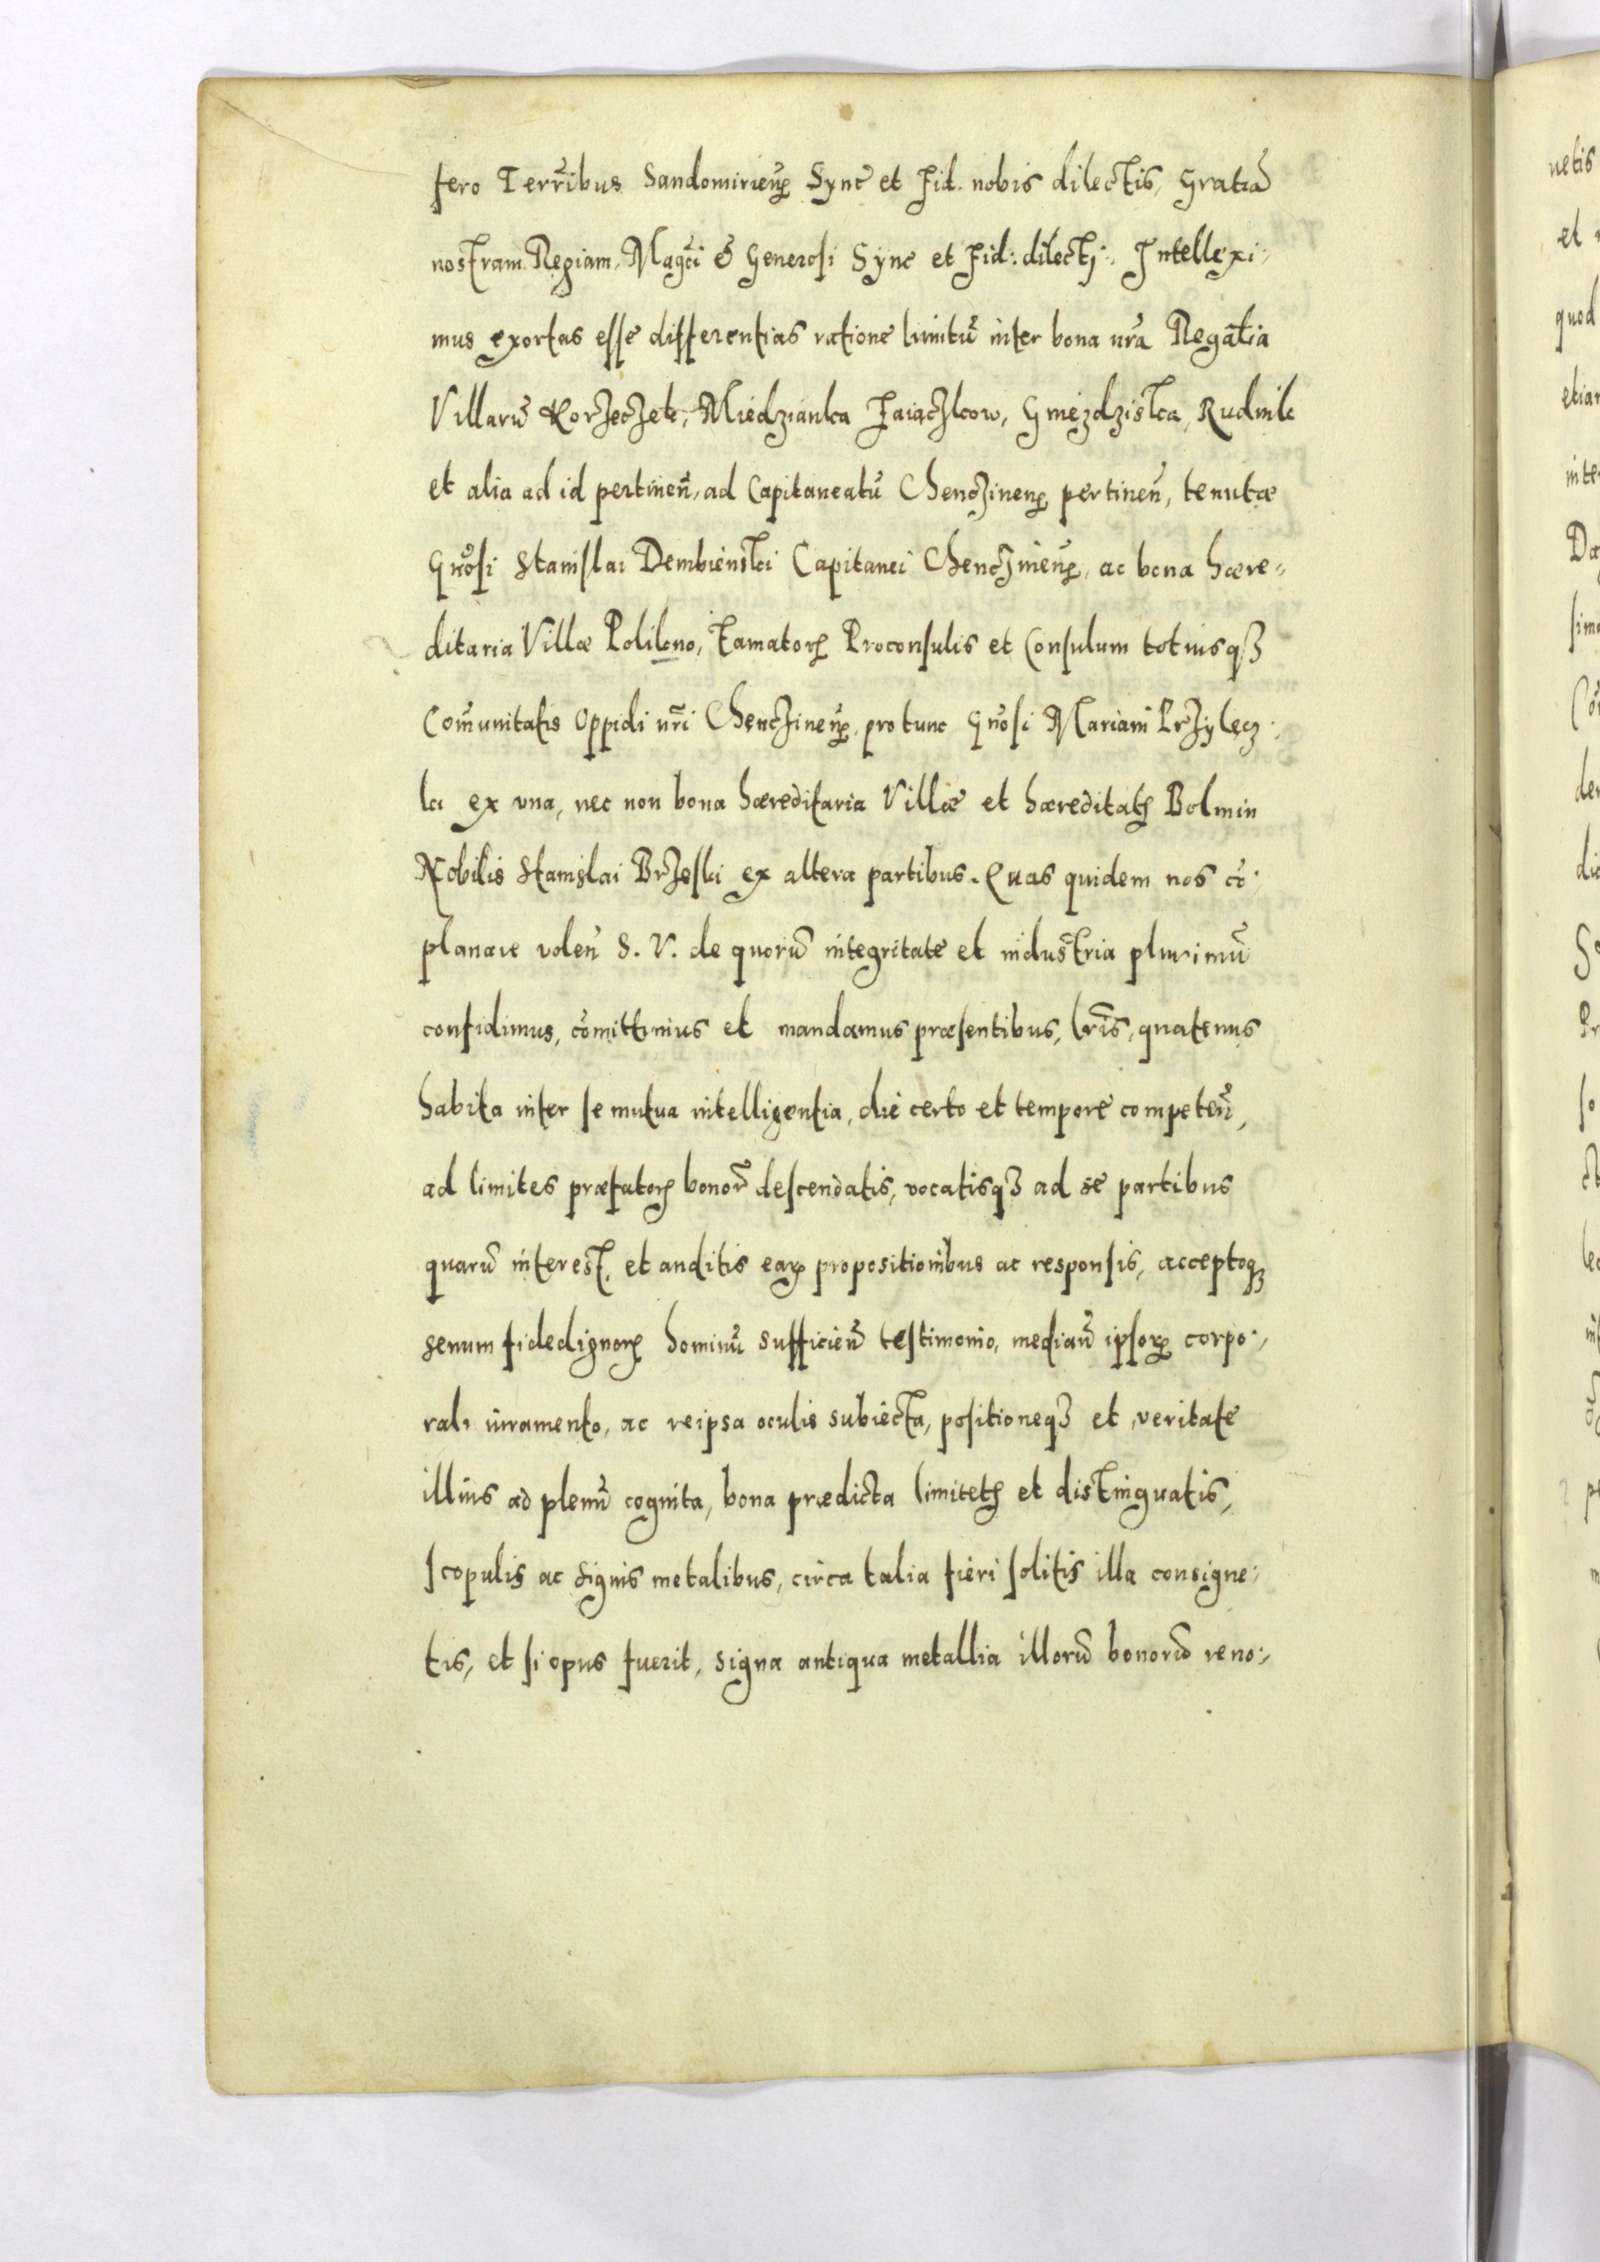 fero Terr̃ibus Sandomirieñ. Synč et Fid. nobis dilectis, Gratiã
nostram Regiam. Magci & Generosi Sync et Fid: dilecti. Intellexi-
mus exortas esse differentias ratione limitũ inter bona nr̃a Regalia
Villarũ Korzeczek, Miedzianka Zaiączkow, Gniezdziska, Rudnik
et alia ad id pertineñ, ad Capitaneatũ Chenczineñ. pertineñ, tenutæ
Gñosi Stanislai Dembienski Capitanei Chencznieñ. ac bona hære-
ditaria Villæ Polikno, Famator Proconsulis et Consulum totiusq3
Com̃unitatis Oppidi nr̃i Chencineñ. pro tunc Gñosi Mariani Przylęcz-
ki ex vna, nec non bona hæreditaria Villæ et hæreditatis Bolmin
Nobilis Stanislai Brzeski ex altera partibus. Quas quidem nos cõ-
planare voleñ S. V. de quorũ integritate et industria plurimũ
confidimus, com̃ittimus et mandamus præsentibus, lr̃is, quatenus
habita inter se mutua intelligentia, die certo et tempore competeñ,
ad limites præfator bonor̃ descendatis, vocatisq3 ad se partibus
quarũ interest, et auditis ear propositionibus ac responsis, acceptoq3
senum fidedignor hominũ sufficieñ testimonio, mediañ ipsor corpo-
rali iuramento, ac reipsa oculis subiecta, positioneq3 et veritate
illius ad plenũ cognita, bona prædicta limitetis et distinguatis,
scopulis ac signis metalibus, circa talia fieri solitis illa consigne-
tis, et si opus fuerit, signa antiqua metallia illorũ bonorũ reno-